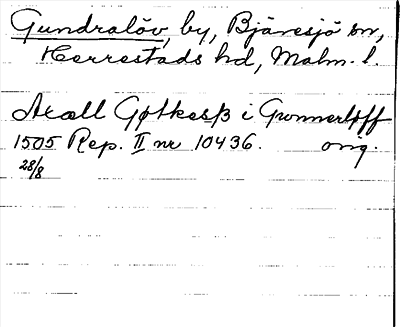 Gundralöv, by, Bjäresjö sn,
Herrestads hd, Malm. l.
Axell Gøtkesß i Gronnerløff
1505 Rep. II nr 10436. orig.
28/8